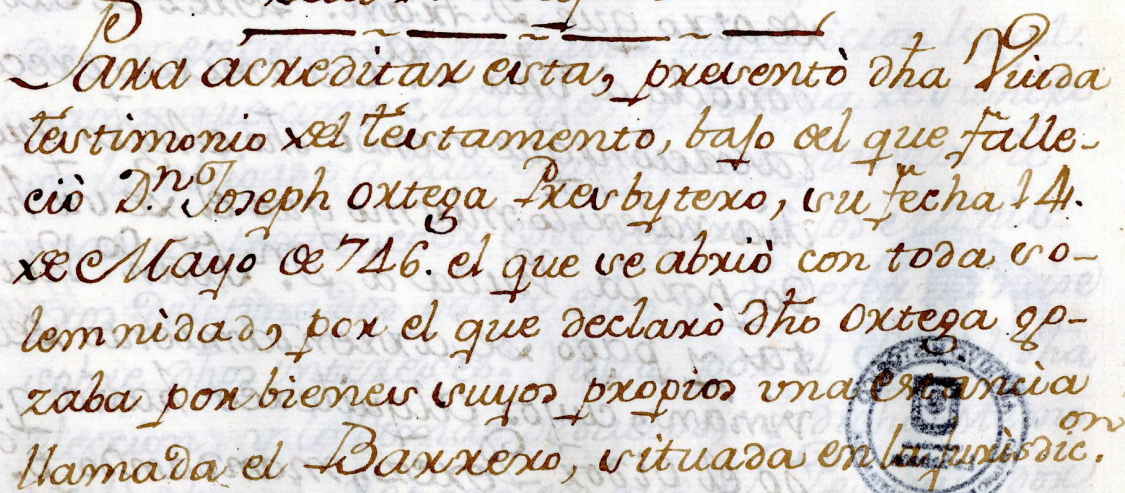 Para acreditar esta, presentò dha Viuda
testimonio del testamento, bajo del que falle-
ciò D.n Joseph Ortega Presbytero, su fecha 14.
de Mayo de 746. el que se abriò con toda so-
lemnidad, por el que declarò dho Ortega go-
zaba por bienes suyos propios una estancia
llamada el Barrero, situada en la jurisdic.on